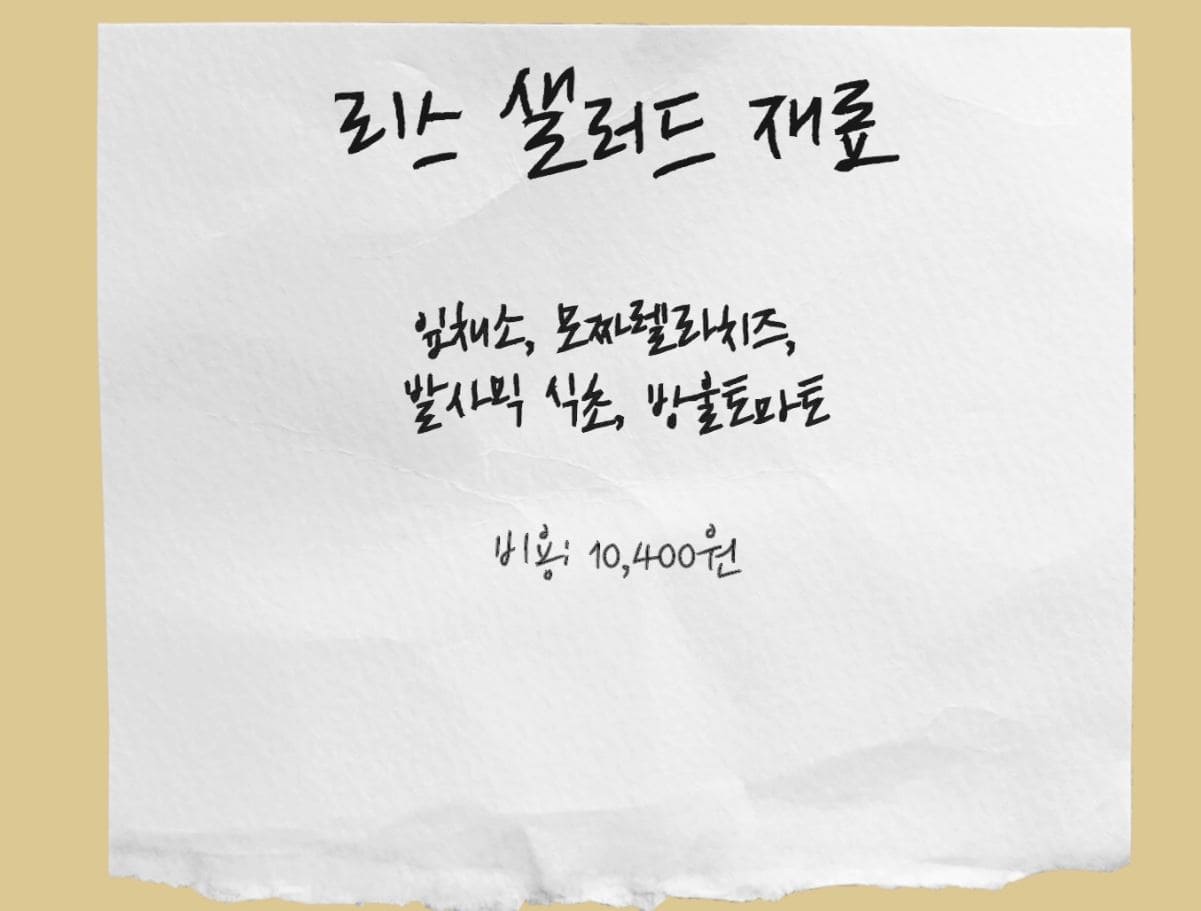 리스 샐러드 재료
잎채소, 모짜렐라치즈,
발사믹 식초, 방울토마토
비용: 10,400원